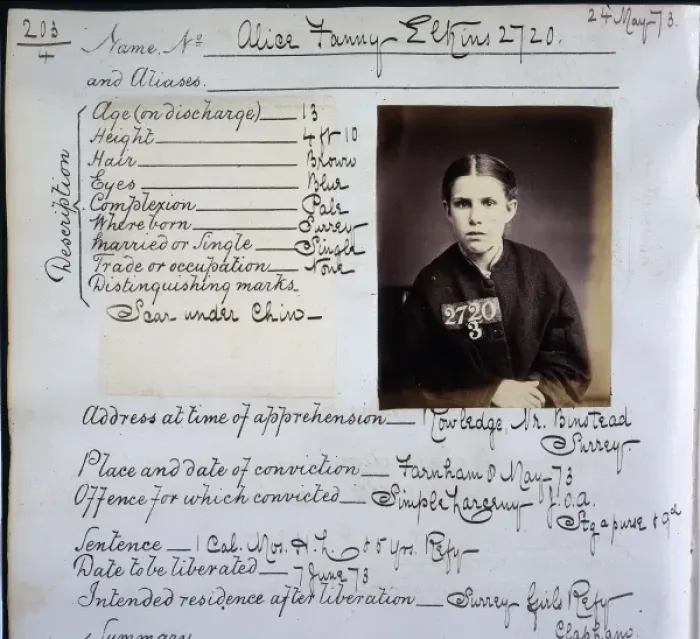 24 May-73.
203
4
Name, No Alice Fanny Elkins 2720.
and Aliases.
Description
Age (on discharge) 13
Height 4 ft 10
Hair Brown
Eyes Blue
Complexion Pale
Where born Surrey
Married or Single Single
Trade or occupation None
Distinguishing marks.
Scar under Chin
2720
3
Address at time of apprehension Rowledge, Nr. Binstead
Surrey.
Place and date of conviction Farnham 8 May-73
Offence for which convicted Simple Larceny J.O.A.
Stg a purse & 9d
Sentence 1 Cal. Mos. H. L. & 5 Yrs. Refy
Date to be liberated 7 June 73
Intended residence after liberation Surrey Girls Refy
Clapham.
Summary